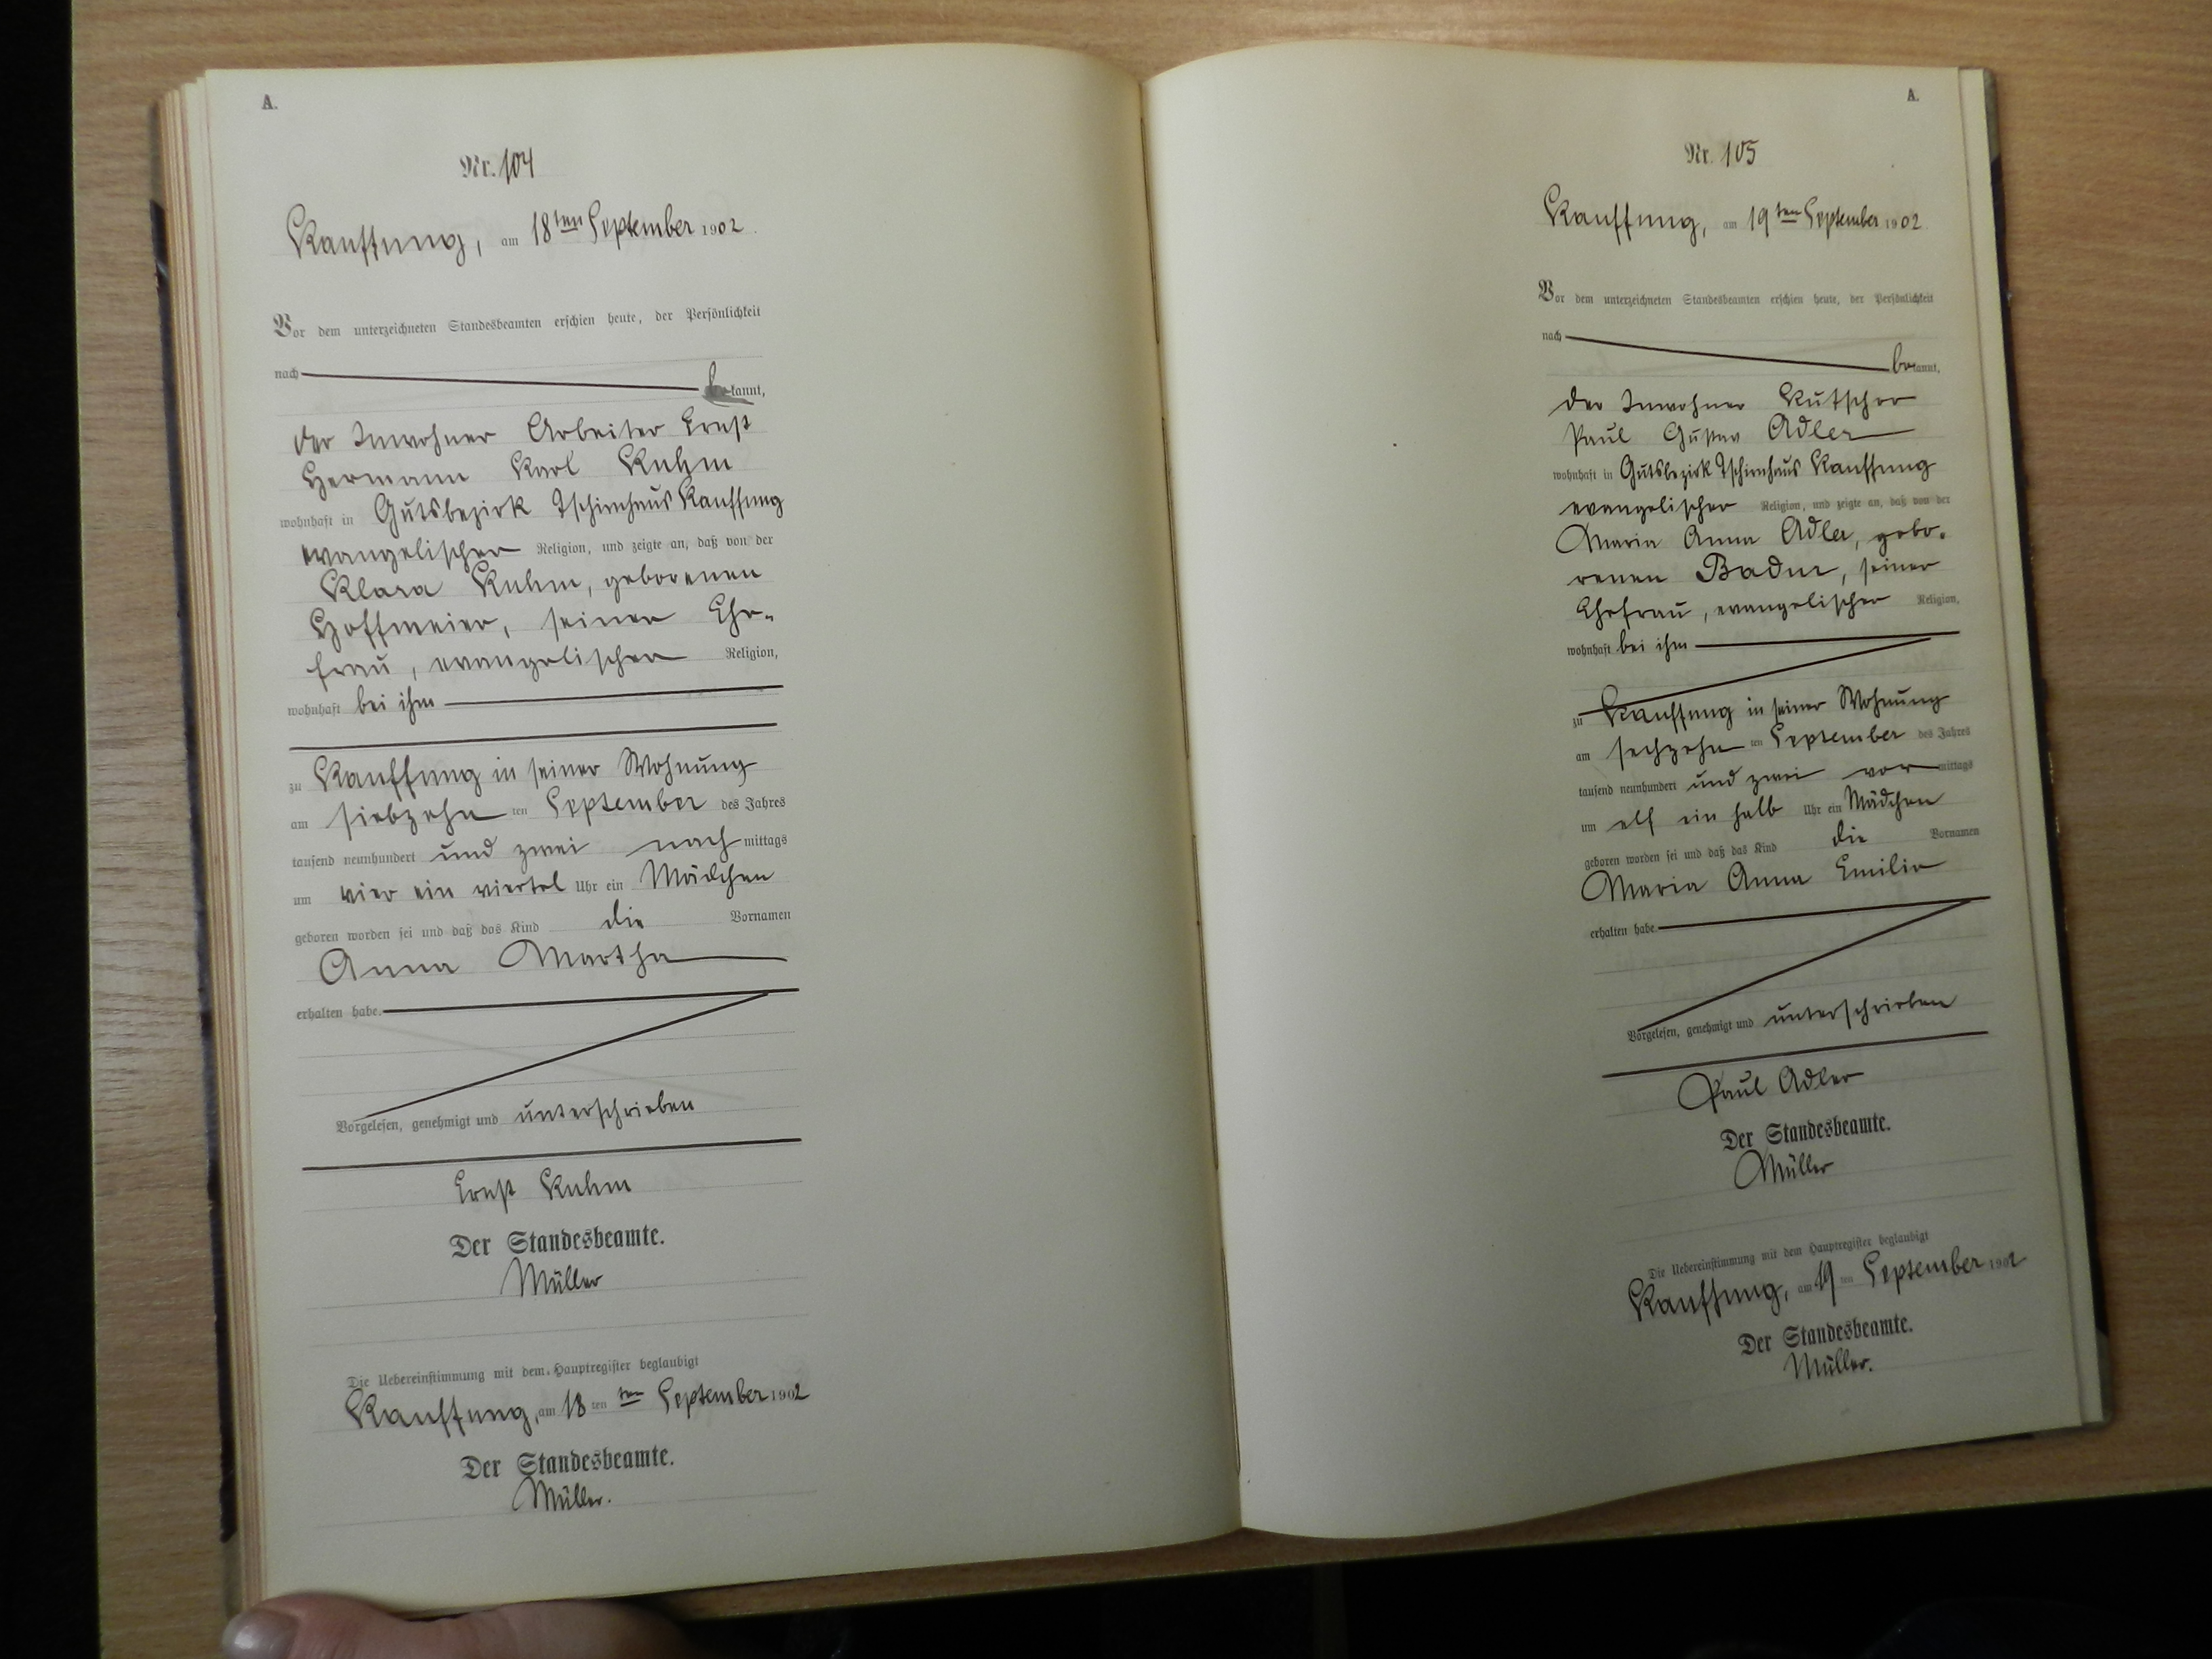 A.
Nr. 104
Kauffung, am 18ten September 1902.
Vor dem unterzeichneten Standesbeamten erschien heute, der Persönlichkeit
nach bekannt,
der Inwohner Arbeiter Ernst
Hermann Karl Kuhm
wohnhaft in Gutsbezirk Tschirnhaus Kauffung
evangelischer Religion, und zeigte an, daß von der
Klara Kuhm, geborenen
Hoffmeier, seiner Ehe-
frau, evangelischen Religion,
wohnhaft bei ihm
zu Kauffung in seiner Wohnung
am siebzehn ten September des Jahres
tausend neunhundert und zwei nach mittags
um vier ein viertel Uhr ein Mädchen
geboren worden sei und daß das Kind die Vornamen
Anna Martha
erhalten habe.
Vorgelesen, genehmigt und unterschrieben
Ernst Kuhm
Der Standesbeamte.
Müller
Die Uebereinstimmung mit dem Hauptregister beglaubigt
Kauffung, am 18 ten ten September 1902
Der Standesbeamte.
Müller.
A.
Nr. 105
Kauffung, am 19ten September 1902.
Vor dem unterzeichneten Standesbeamten erschien heute, der Persönlichkeit
nach bekannt,
der Inwohner Kutscher
Paul Gustav Adler
wohnhaft in Gutsbezirk Tschirnhaus Kauffung
evangelischer Religion, und zeigte an, daß von der
Maria Anna Adler, gebo-
renen seiner
Ehefrau, evangelischer Religion,
wohnhaft bei ihm
zu Kauffung in seiner Wohnung
am sechzehn ten September des Jahres
tausend neunhundert und zwei vor mittags
um elf ein halb Uhr ein Mädchen
geboren worden sei und daß das Kind die Vornamen
Maria Anna Emilie
erhalten habe.
Vorgelesen, genehmigt und unterschrieben
Paul Adler
Der Standesbeamte.
Müller
Die Uebereinstimmung mit dem Hauptregister beglaubigt
Kauffung, am 19 ten September 1902
Der Standesbeamte.
Müller.